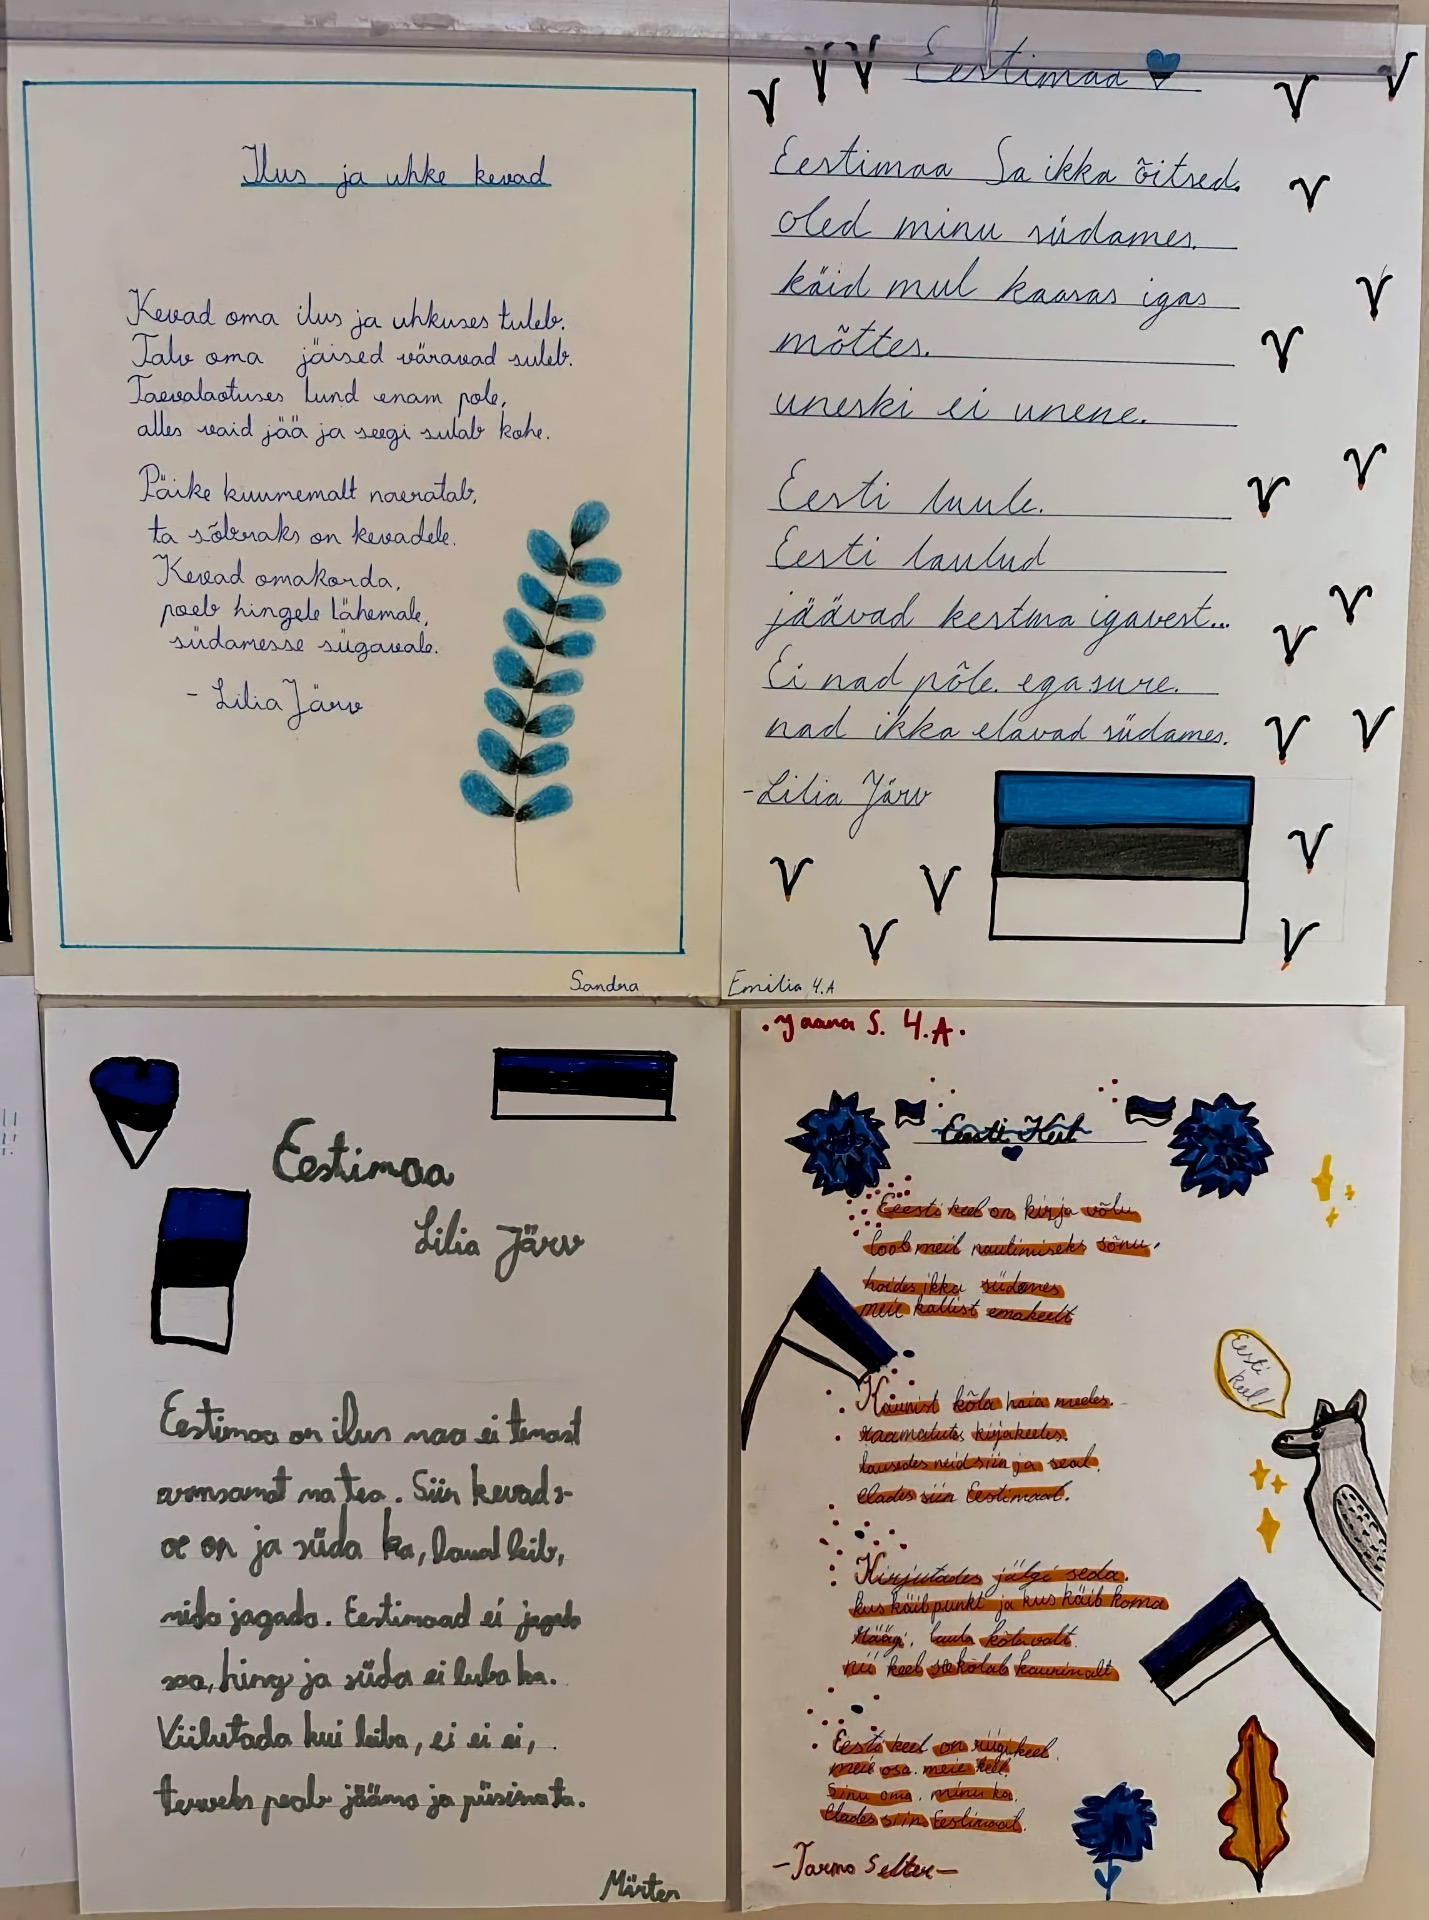 Ilus ja uhke kevad
Kevad oma ilus ja uhkuses tuleb.
Talv oma jäised väravad suleb.
Taevalaotuses lund enam pole,
alles vaid jää ja seegi sulab kohe.
Päike kuumemalt naeratab,
ta sõbraks on kevadele.
Kevad omakorda,
poeb hingele lähemale,
südamesse sügavale.
- Lilia Järv
Sandra
Eestimaa
Eestimaa Sa ikka õitsed.
oled minu südames.
käid mul kaasas igas
mõttes.
uneski ei unene.
Eesti luule.
Eesti laulud
jäävad kestma igavest...
Ei nad põle. ega sure.
nad ikka elavad südames.
-Lilia Järv
Emilia 4.A
Eestimaa
Lilia Järv
Eestimaa on ilus maa ei temast
armsamat ma tea. Siin kevad s-
oe on ja süda ka, laual leib,
mida jagada. Eestimaad ei jagada
saa, hing ja süda ei luba ka.
Viilutada kui leiba, ei ei ei,
terveks peab jääma ja püsima ta.
Märten
. Jaana S. 4.A.
Eesti Keel
Eesti keel on kirja võlu
loob meil nautimiseks sõnu,
hoides ikka südames
meie kallist emakeelt
Kaunist kõla meeles.
raamatutes kirjakeeles.
lausedes neid siin ja seal.
elades siin Eestimaal.
Eesti
keel!
Kirjutades jälgi seda.
kus käib punkt ja kus käib koma
räägi, laula kõlavalt.
nii keel kõlab kaunimalt
Eesti keel on riigikeel.
meie osa. meie keel.
Sinu oma, minu ka.
Elades siin Eestimaal.
-Tarmo Selter-